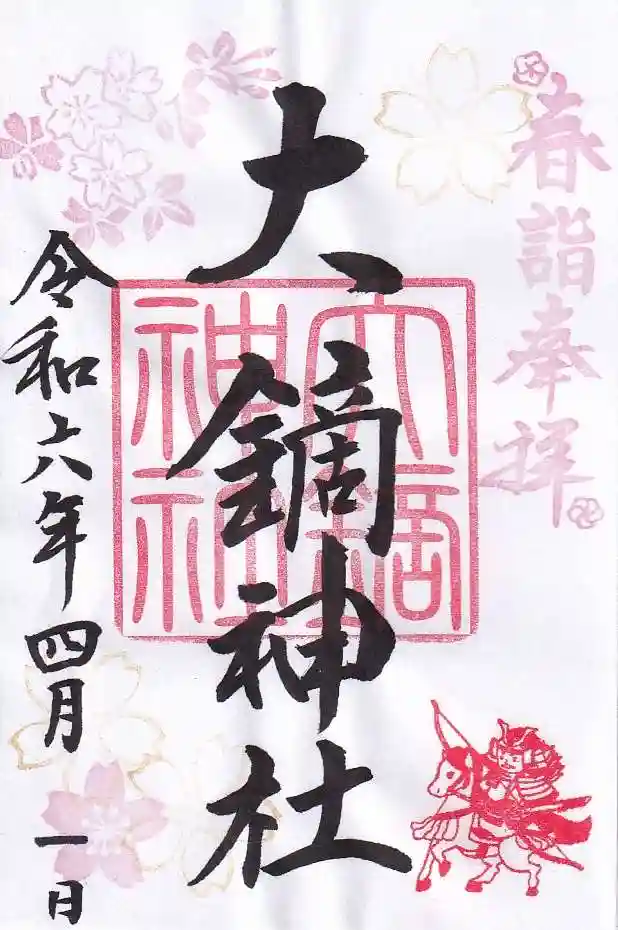 春詣奉拝
大鏑神社
令和六年四月一日